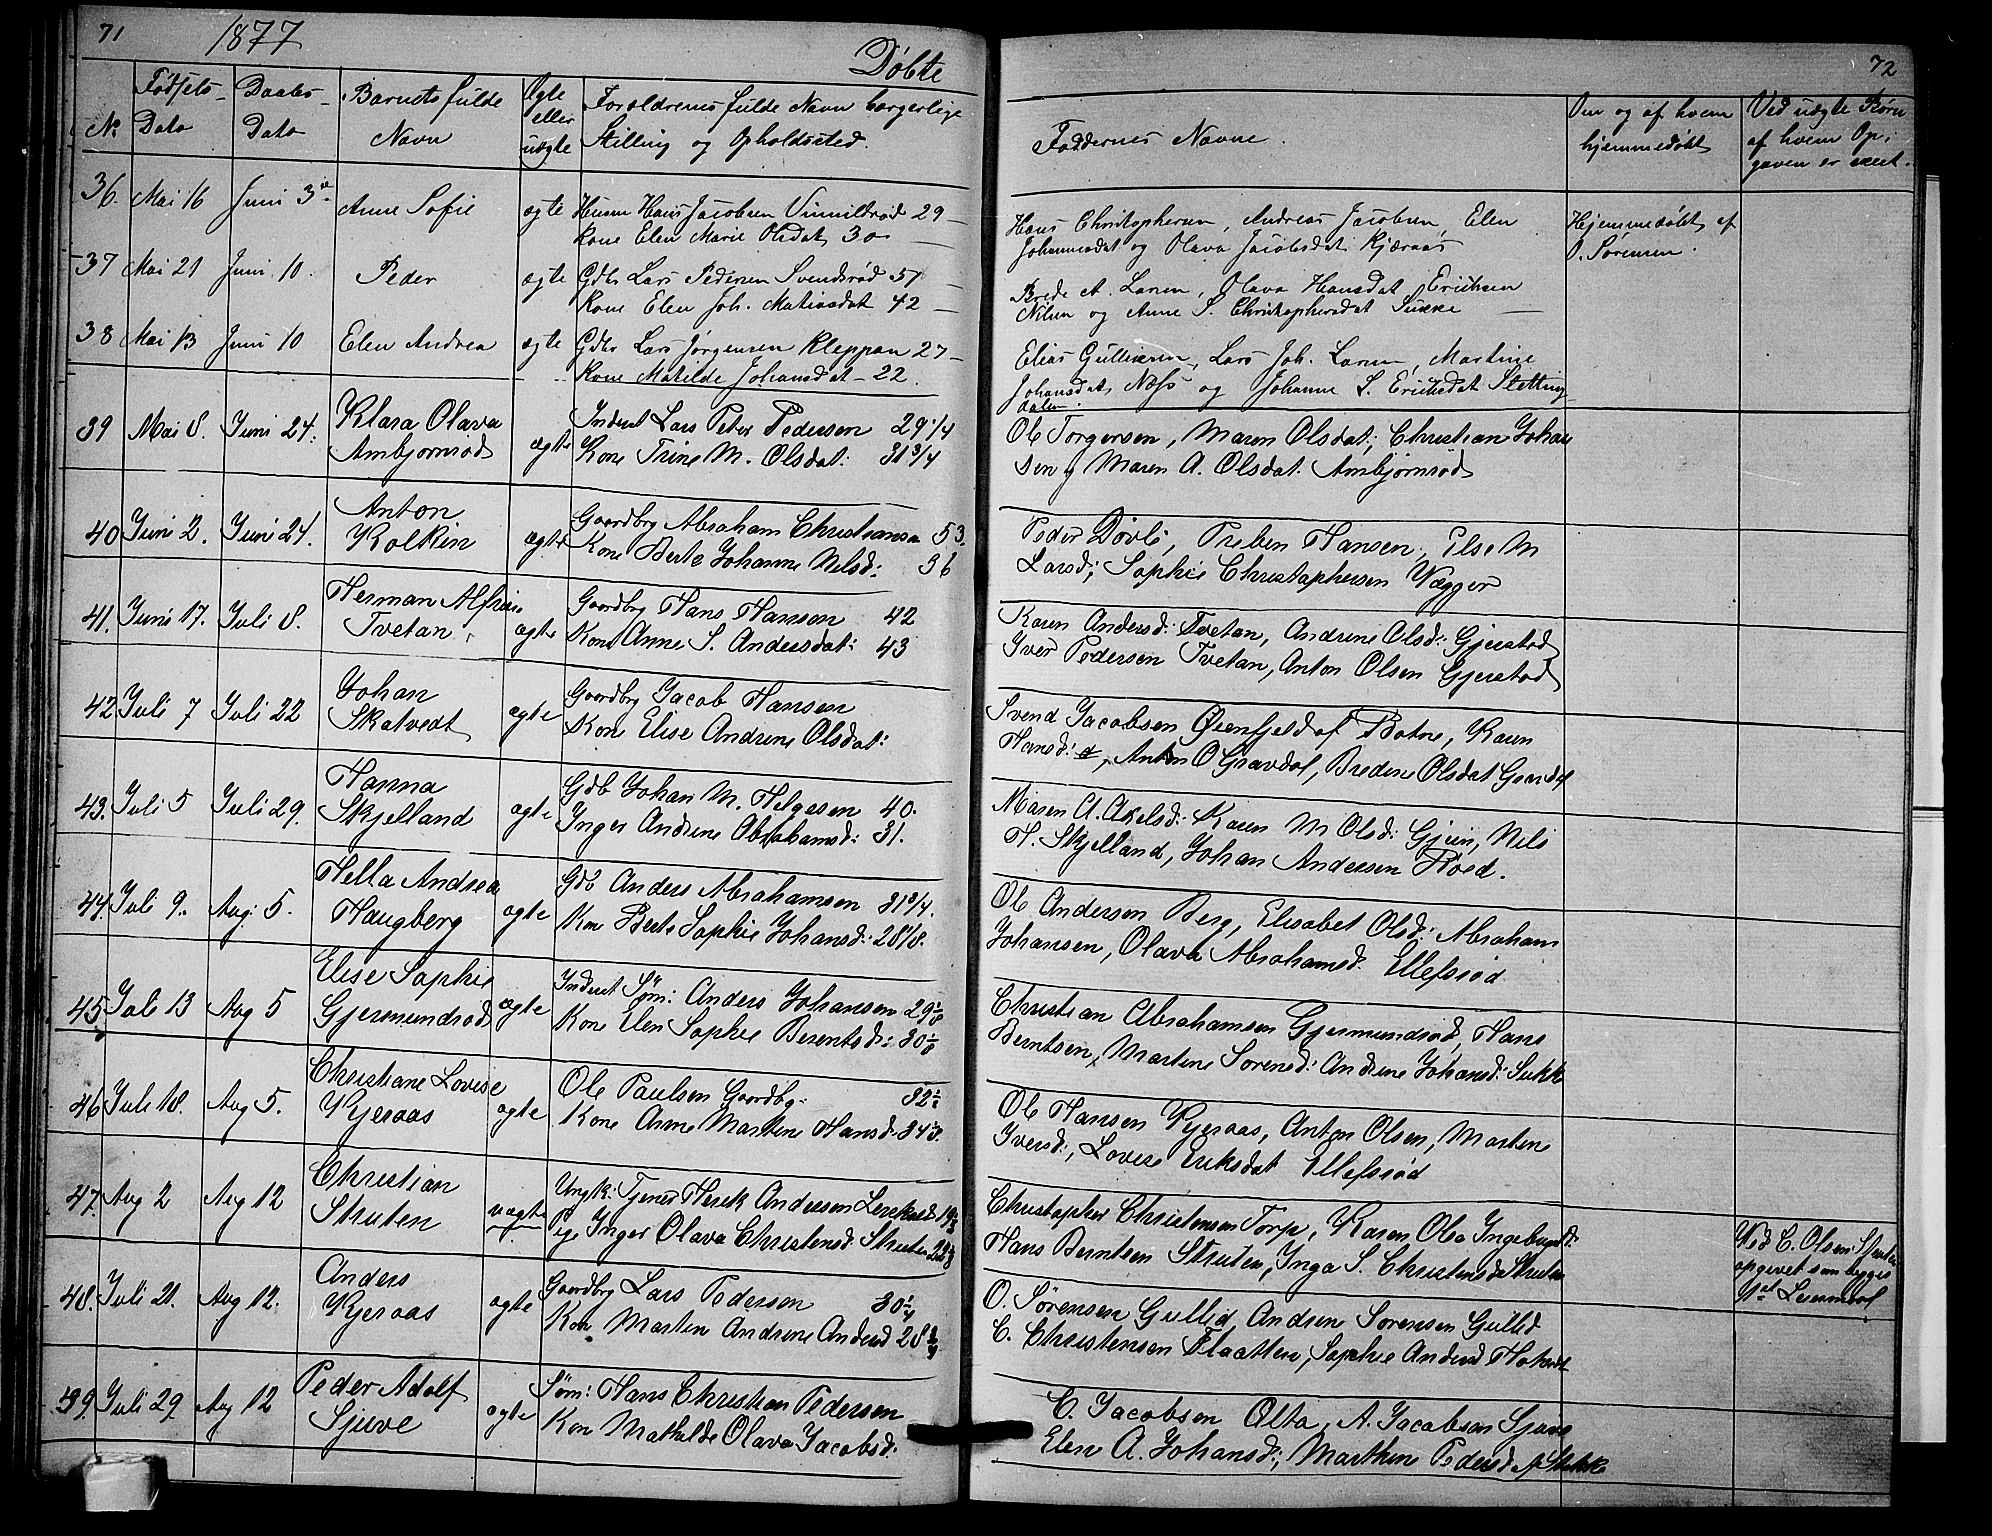 71 1877 Døbte
No Fødsels Dato Daabs Dato Barnets fulde Navn Ægte eller uægte Forældrenes fulde Navn borgerlige Stilling og Opholdssted.
36. Mai 16 Juni 3 Anne Sofie ægte Husm Hans Jacobsen Vinnildrød 29
Kone Elen Marie Olsdat 30
37 Mai 21 Juni 10. Peder ægte Gdbr Lars Pedersen Svendsrød 57
Kone Elen Joh. Matiasdat 42
38 Mai 13 Juni 10 Elen Andrea ægte Gdbr Lars Jørgensen Kleppan 27
Kone Matilde Johansdat 22.
39 Mai 8. Juni 24. Klara Olava ægte Inderst Lars Peter Pedersen 29 1/4
Ambjørnrød Kone Trine M. Olsdat: 31 3/4
40 Juni 2. Juni 24. Anton ægte Gaardbrg Abraham Christiansen 53.
Kolkin Kone Berte Johanne Nilsd: 36
41. Juni 17. Juli 8. Herman Alfred ægte Gaardbrg Hans Hansen 42
Tvetan Kone Anne S. Andersdat: 43
42 Juli 7 Juli 22 Johan ægte Gaardbrg Jacob Hansen
Skatvedt Kone Elise Andrine Olsdat:
43. Juli 5 Juli 29. Hanna ægte Gdb Johan M. Helgesen 40.
Skjelland Inger Andrine Abrahamsd: 31.
44. Juli 9. Aug. 5. Hella Andrea ægte Gdb Anders Abrahamsen 31 3/4.
Haugberg Kone Berte Sophie Johansd: 28 1/8.
45. Juli 13 Aug 5 Elise Sophie ægte Inderst Søm: Anders Johansen 29
Gjermundrød Kone Elen Sophie Berentsd: 30
46 Juli 18. Aug 5. Christiane Lovise ægte Ole Paulsen Gaardbg. 32
Kjeraas Kone Anne Martine Hansd: 34
47. Aug 2 Aug 12 Christian uægte Ungk: Tjener Henrik Andersen 19
Struten Pige Inger Olava Christensd. Struten
48. Juli 21. Aug 12. Anders ægte Gaardbrg Lars Pedersen 30 1/4
Kjeraas Kone Martin Andrine Andersd 28 3/4
39. Juli 29. Aug 12 Peder Adolf ægte Søm: Hans Christian Pedersen
Sjuve Kone Mathilde Olava Jacobsd:
72
Faddernes Navne. Om og af hvem hjemmedøbt Ved uægte Børn af hvem Opgaven er skeet.
Hans Christophersen, Andreas Jacobsen, Elen Hjemmedøbt af
Johannesdat og Olava Jacobsdat Kjæraas O. Sørensen.
Brede A. Larsen, Olava Hansdat Erichsen
Nilsen og Anne S. Christophersdat Sukke
Elias Gulliksen, Lars Joh. Larsen, Martine
Johansdat Næss og Johanne S. Ericksdat Sletting
dalen.
Ole Torgersen, Maren Olsdat; Christian Johan
sen og Maren A. Olsdat. Ambjørnrød
Peder Døvle, Preben Hansen, Else M
Larsd; Sophie Christophersen Vægger
Karen Andersd: Tvetan, Andrine Olsd: Gjerstad
Iver Pedersen Tvetan, Anton Olsen Gjerstad
Svend Jacobsen Øienfjeld af Botne, Karen
Hansd: , Anton O Gravdal, Bredine Olsdat Gravdal
Maren A. Axelsd: Karen M Olsd: Gjein, Nils
H. Skjelland, Johan Andersen Røed.
Ole Andersen Berg, Elisabet Olsd: Abraham
Johansen, Olava Abrahamsd. Ellefsrød
Christian Abrahamsen Gjermundrød, Hans
Berntsen, Martine Sørensd: Andrine Johansd: Sukke
Ole Hansen Kjeraas, Anton Olsen, Martine
Iversd:, Lovise Eriksdat Ellefsrød
Christopher Christensen Torp, Karen Olea Ved C. Olsen Struten
Hans Berntsen Struten, Inga S. Christensd Struten opgivet som begges
1ste Leiermaal
O. Sørensen Gullid, Andrine Sørensen Gullid
C. Christensen Flaatten, Sophie Andersd
C. Jacobsen Olta, A. Jacobsen Sjuve
Elen A. Johansd:, Marthine Pedersd af Sukke